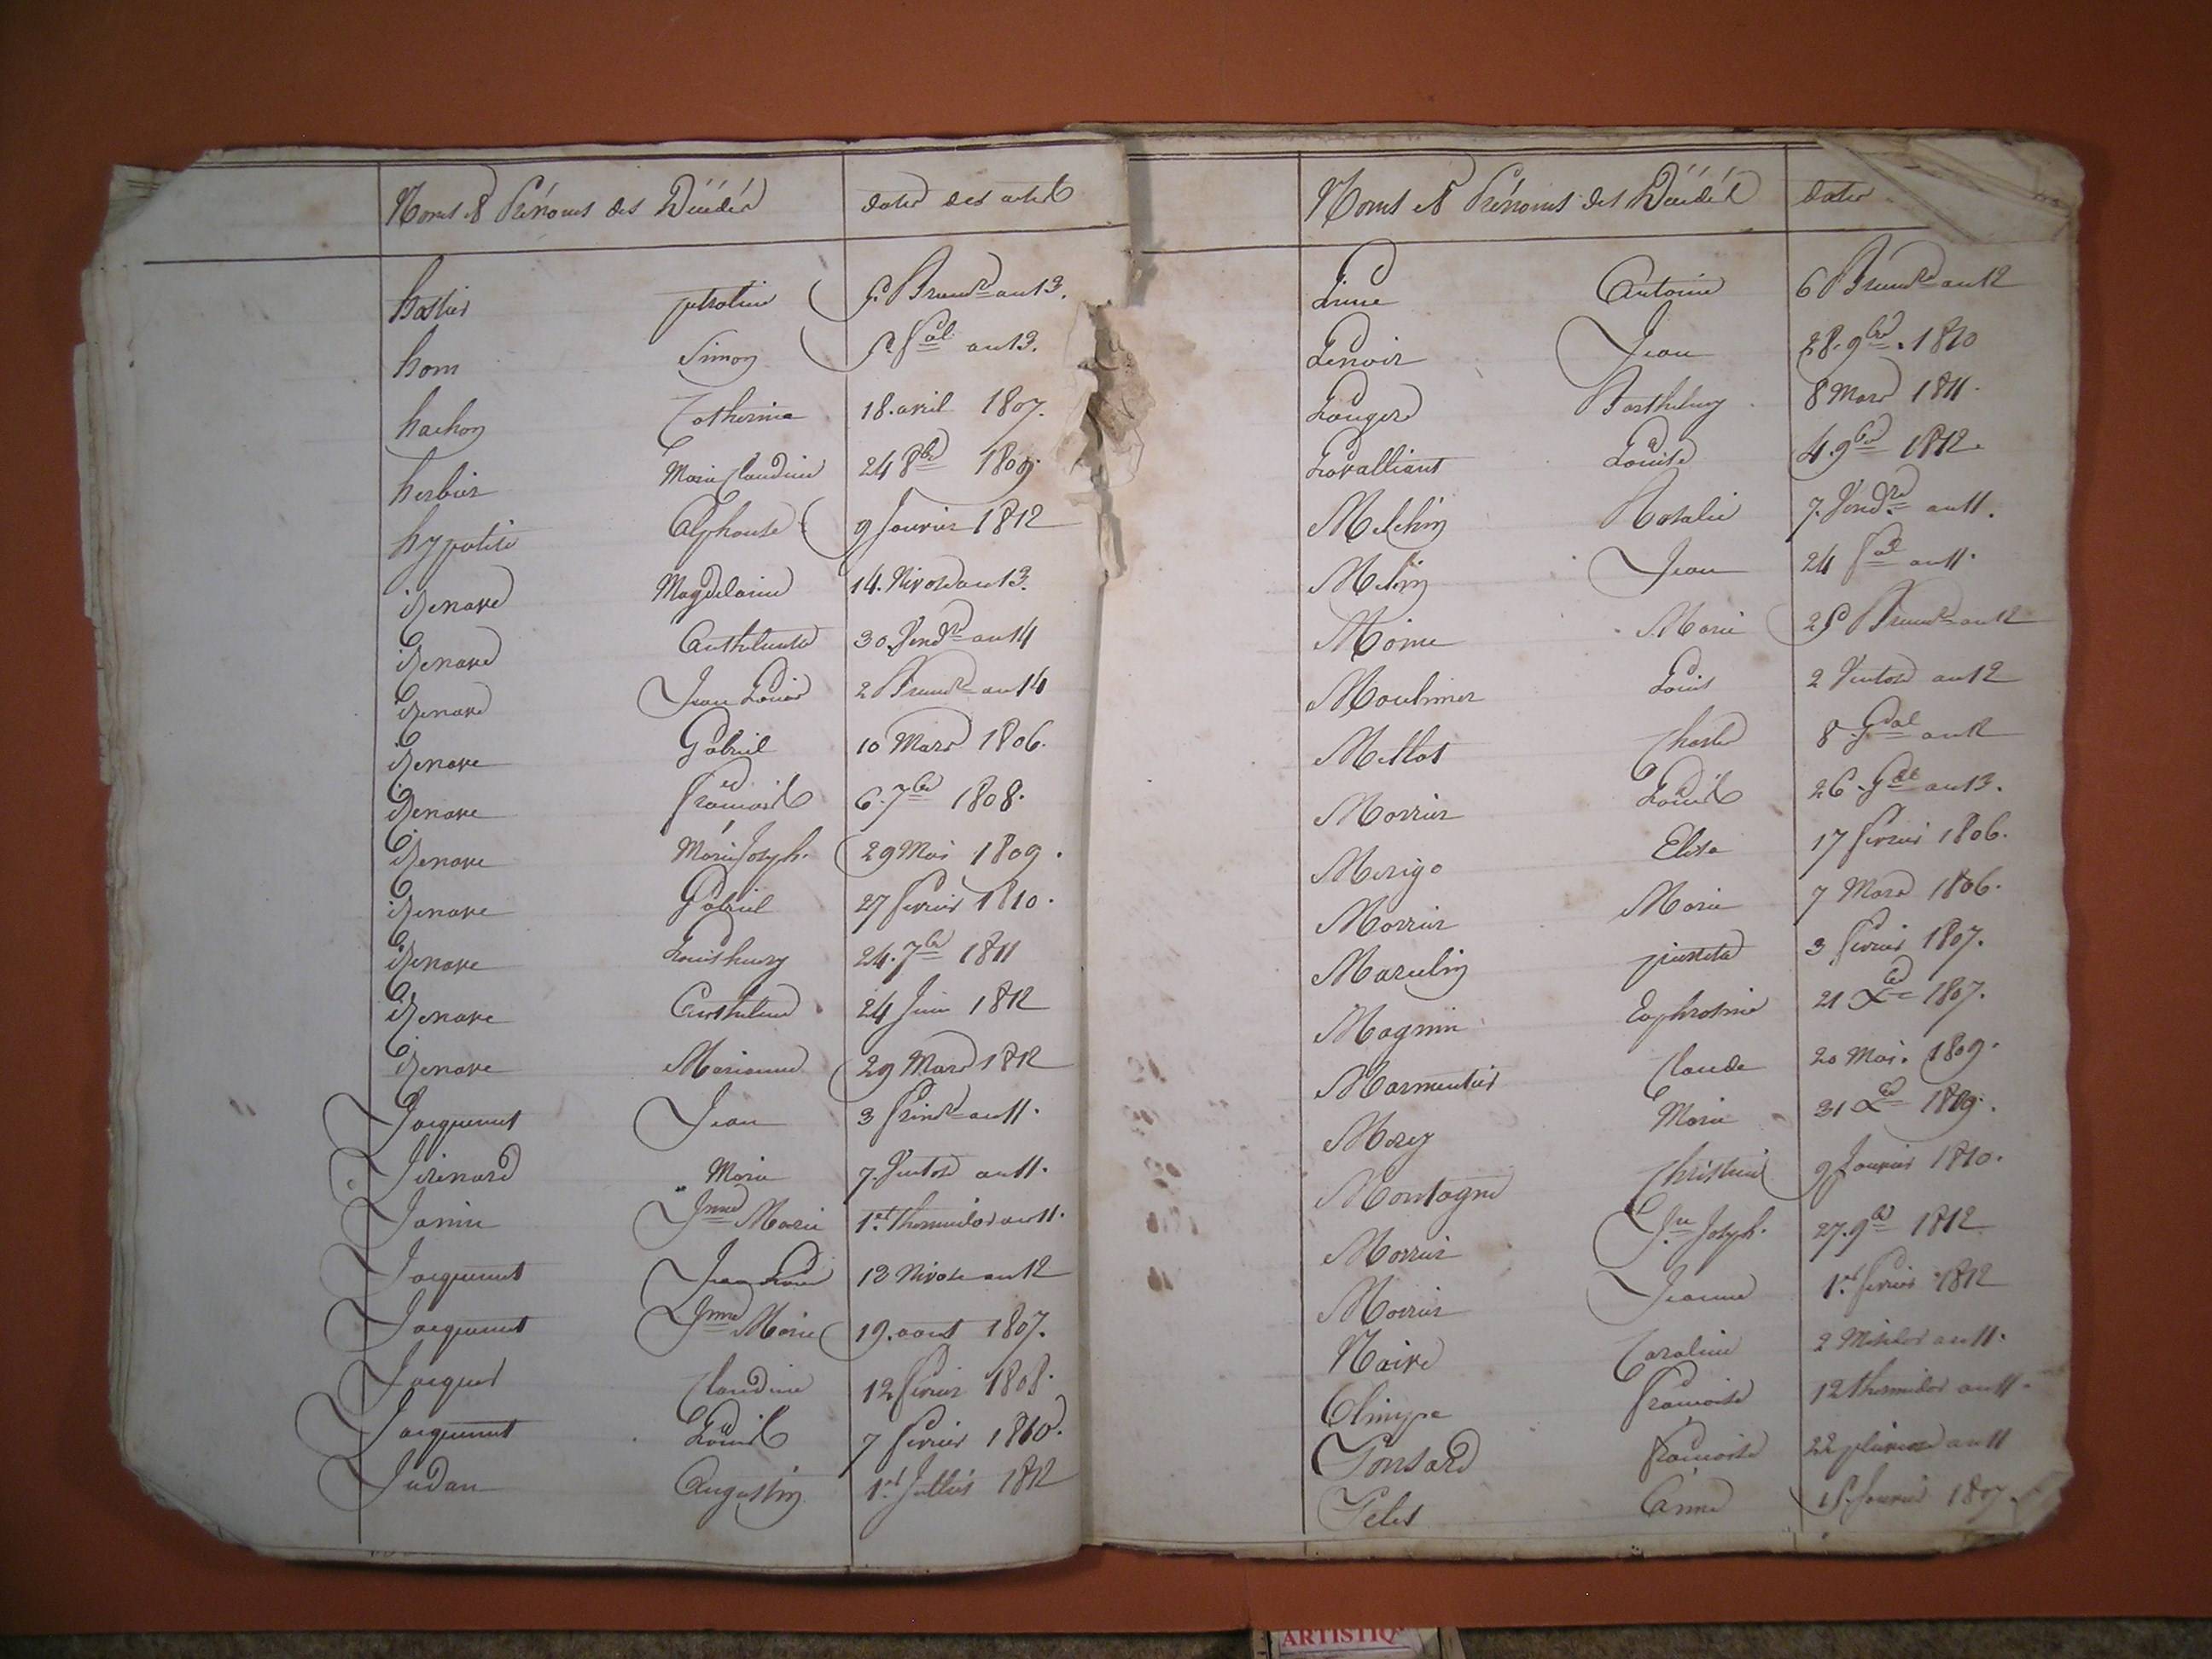 Noms et Prénoms des Décédés dates des actes
hostier petroline 5 Brum.re an 13.
hom Simon 5 f.al an 13.
hachon Catherine 18. avril 1807.
herbier Marie Claudine 24 8bre 1809.
hypolite Alphonse 9 Janvier 1812
izenave Magdelaine 14. Nivose an 13.
izenave Anthelmette 30. Vend.re an 14
izenave Jean Louis 2 Brum.re an 14
izenave Gabriel 10 Mars 1806.
izenave François 6. 7bre 1808.
izenave Marie Joseph. 29 Mai 1809.
izenave Gabriel 27 fevrier 1810.
izenave 24. 7bre 1811
izenave Anthelme 24 Juin 1812
izenave Marianne 29 Mars 1812
Jacquemet Jean 3 frim.re an 11.
Jirenard Marie 7. Ventose an 11.
Janin J.nne Marie 1.er thermidor an 11.
Jacquemet Jean Louis 12 Nivose an 12
Jacquemet J.nne Marie 19. aout 1807.
Jacques Claudine 12 fevrier 1808.
Jacquemet Louis 7 fevrier 1810.
Judan Augustin 1.er Juillet 1812
Noms et Prénoms des Décédés dates
Linne Antoine 6 Brum.re an 12
Lenoir Jean 28. 9bre. 1810
Longere Barthelemy 8 Mars 1811.
Lovalliant Louise 4. 9bre 1812.
Melchin Rosalie 7. Vend.re an 11.
Melin Jean 24 f.al an 11.
Moine Marie 25 Brum.re an 12
Moulinier Louis 2 Ventose an 12
Millot Charles 8 G.al an 12
Morrier Louis 26. G.al an 13.
Merigo Elise 17 fevrier 1806.
Morrier Marie 7 Mars 1806.
Marcelin pierrette 3 fevrier 1807.
Magnin Euphrosine 21 Xbre 1807.
Marmentier Claude 20 Mai. 1809.
Morey Marie 31 Xbre 1809.
Montagne Christine 9 Janvier 1810.
Morrier Joseph. 27. 9bre 1812
Morrier Jeanne 1.er fevrier 1812
Noire Caroline 2 Messidor an 11.
Olimpe Françoise 12 thermidor an 11.
Ponsard Françoise 22 pluviose an 11
Pelet Anne 15. Janvier 1807.
ARTISTIQ